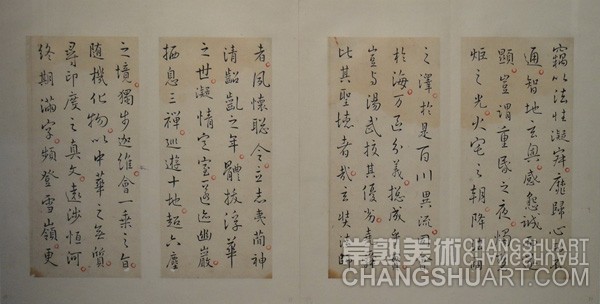 竊以法性凝寂靡歸心
通智地玄奧感懇誠
顯豈謂重昏之夜燭
炬之光火宅之朝降
之澤於是百川異流
於海万區分義總成
豈與湯武校其優劣堯
比其聖德者哉玄奘法師
者夙懷聰令立志夷簡神
清齠齔之年體拔浮華
之世凝情定室匿迹幽巖
栖息三禪巡遊十地超六塵
之境獨步迦維會一乘之旨
随機化物以中華之無質
尋印度之真文遠涉恒河
終期滿字頻登雪嶺更
常熟美術
CHANGSHUART
CHANGSHUART.COM